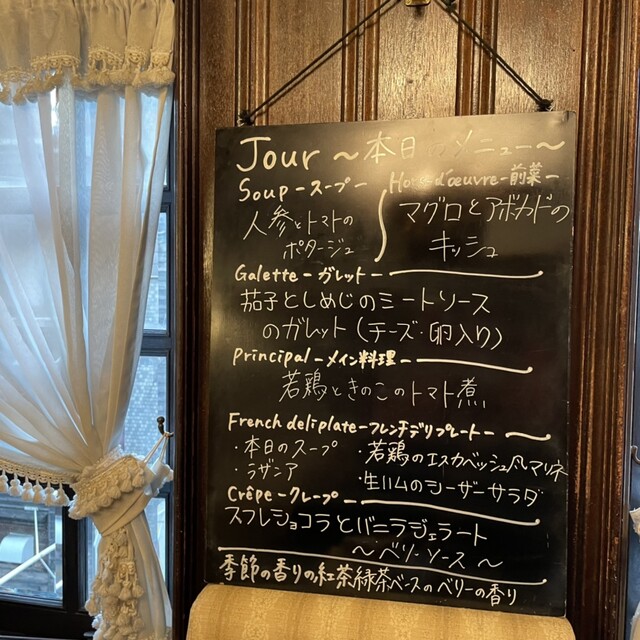 Jour ～本日のメニュー～
Soup－スープ－
人参とトマトの
ポタージュ
Hors-d'œuvre－前菜－
マグロとアボカドの
キッシュ
Galette－ガレット－
茄子としめじのミートソース
のガレット(チーズ・卵入り)
Principal－メイン料理－
若鶏ときのこのトマト煮
French deliplate－フレンチデリプレート－
・本日のスープ
・ラザニア
・若鶏のエスカベッシュ風マリネ
・生ハムのシーザーサラダ
Crêpe－クレープ－
スフレショコラとバニラジェラート
～ベリーソース～
季節の香りの紅茶緑茶ベースのベリーの香り